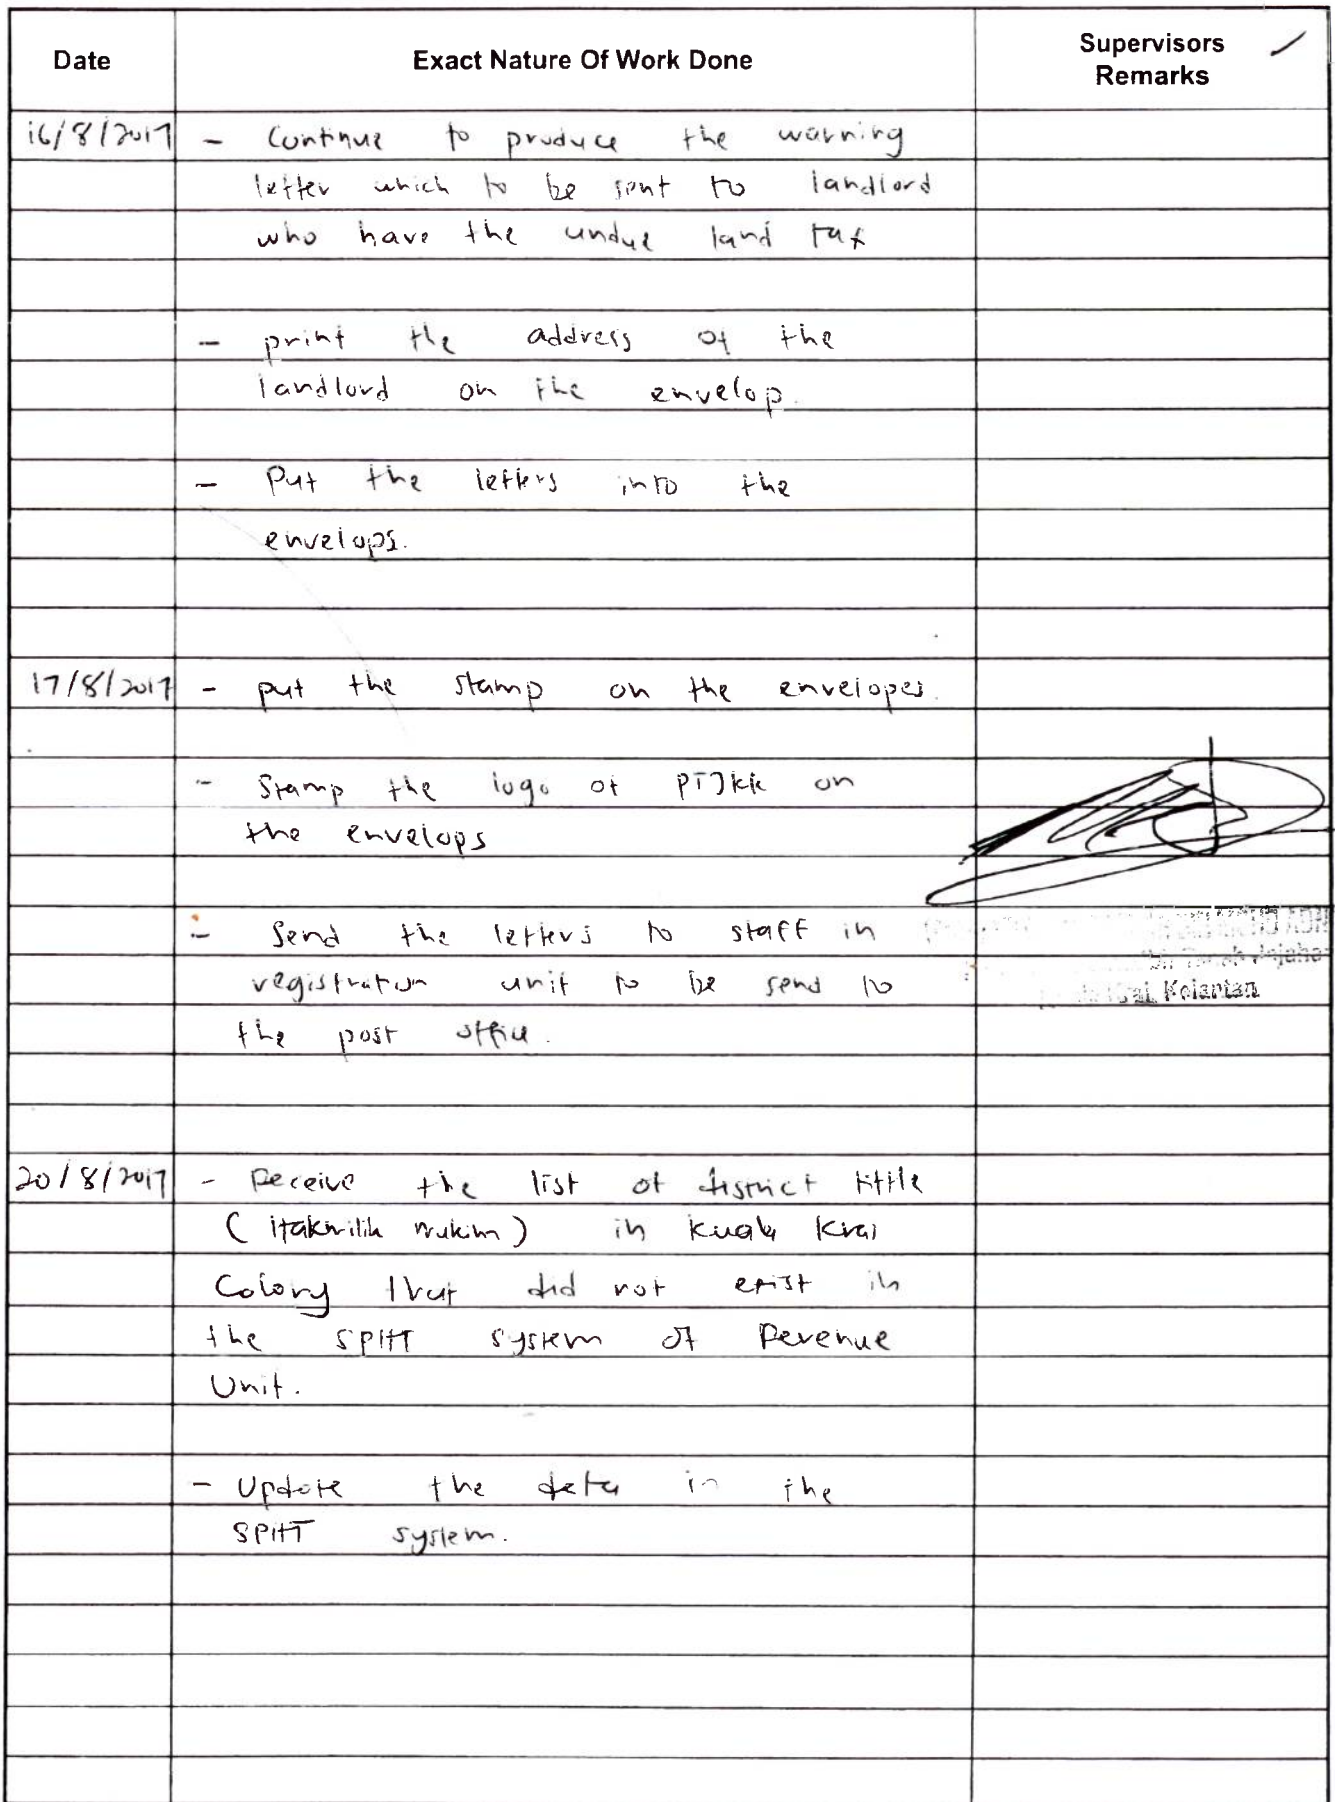 Date Exact Nature Of Work Done Supervisors Remarks
16/8/2017 - Continue to produce the warning
letter which to be sent to landlord
who have the undue land tax
- print the address of the
landlord on the envelop.
- Put the letters into the
envelops.
17/8/2017 - put the stamp on the envelopes.
- Stamp the logo of PTJKK on
the envelops
- Send the letters to staff in
registration unit to be send to
the post office.
Kelantan
20/8/2017 - Receive the list of district tittle
(Hakmilik Mukim) in Kuala Krai
Colony that did not exist in
the SPHT system of Revenue
Unit.
- Update the data in the
SPHT system.